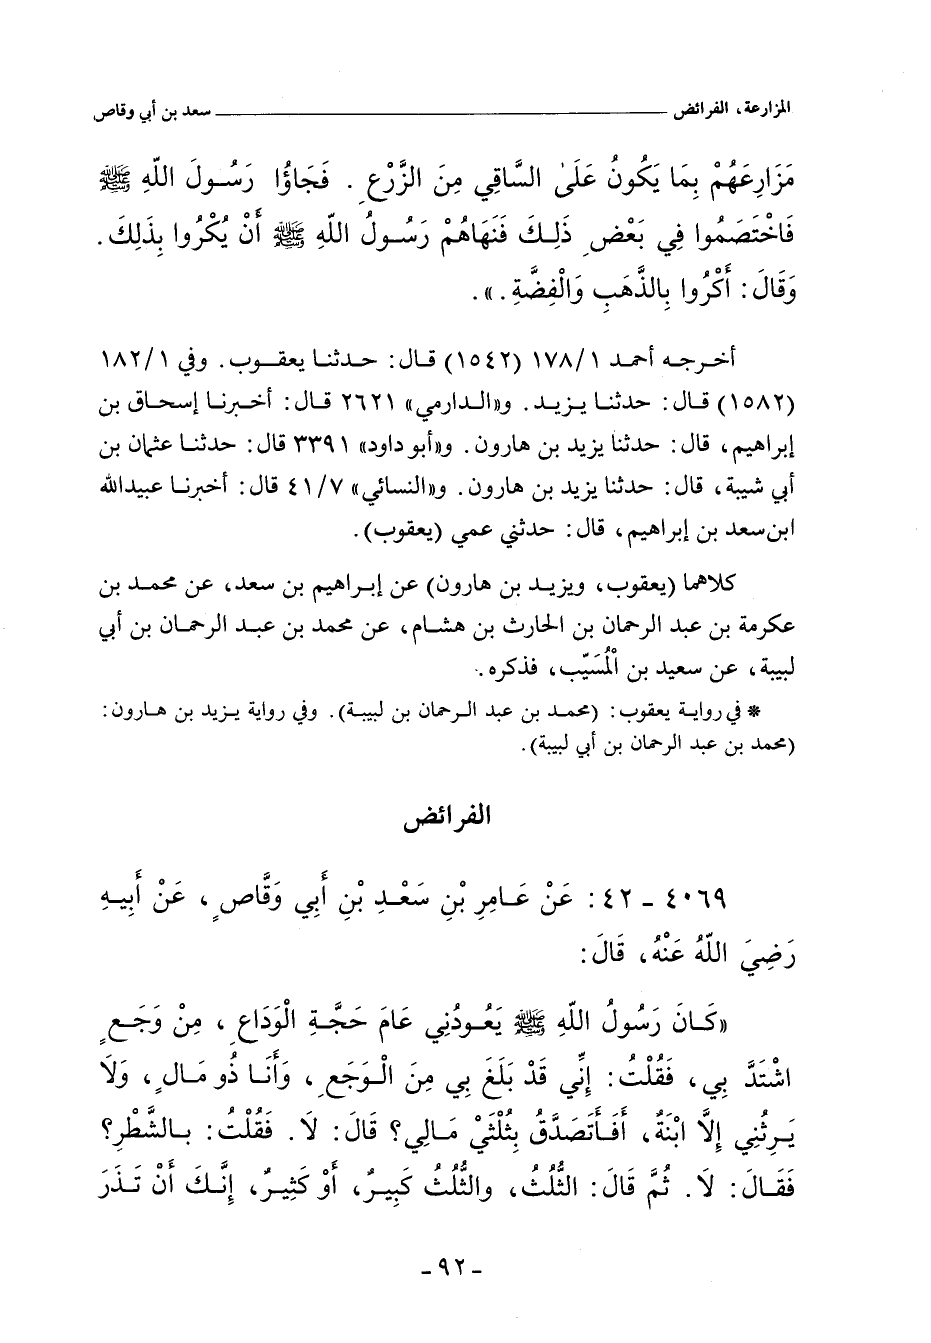 المزارعة، الفرائض ــــــــــــــــــــــــــــــــ سعد بن أبي وقاص
مَزَارِعَهُمْ بِمَا يَكُونُ عَلَىٰ السَّاقِي مِنَ الزَّرْعِ . فَجَاؤُا رَسُولَ اللّهِ ﷺ
فَاخْتَصَمُوا فِي بَعْضِ ذَلِكَ فَنَهَاهُمْ رَسُولُ اللّهِ ﷺ أَنْ يُكْرُوا بِذَلِكَ.
وَقَالَ: أَكْرُوا بِالذَّهَبِ وَالْفِضَّةِ.».
أخرجه أحمد ١٧٨/١ (١٥٤٢) قال: حدثنا يعقوب. وفي ١٨٢/١
(١٥٨٢) قال: حدثنا يزيد. و«الدارمي» ٢٦٢١ قال: أخبرنا إسحاق بن
إبراهيم، قال: حدثنا يزيد بن هارون. و«أبو داود» ٣٣٩١ قال: حدثنا عثمان بن
أبي شيبة، قال: حدثنا يزيد بن هارون. و«النسائي» ٤١/٧ قال: أخبرنا عبيدالله
ابن سعد بن إبراهيم، قال: حدثني عمي (يعقوب).
كلاهما (يعقوب، ويزيد بن هارون) عن إبراهيم بن سعد، عن محمد بن
عكرمة بن عبد الرحمان بن الحارث بن هشام، عن محمد بن عبد الرحمان بن أبي
لبيبة، عن سعيد بن الْمُسَيِّب، فذكره.
* في رواية يعقوب: (محمد بن عبد الرحمان بن لبيبة). وفي رواية يزيد بن هارون:
(محمد بن عبد الرحمان بن أبي لبيبة).
الفرائض
٤٠٦٩ - ٤٢: عَنْ عَامِرِ بْنِ سَعْدِ بْنِ أَبِي وَقَّاصٍ، عَنْ أَبِيهِ
رَضِيَ اللّهُ عَنْهُ، قَالَ:
«كَانَ رَسُولُ اللّهِ ﷺ يَعُودُنِي عَامَ حَجَّةِ الْوَدَاعِ، مِنْ وَجَعٍ
اشْتَدَّ بِي، فَقُلْتُ: إِنِّي قَدْ بَلَغَ بِي مِنَ الْوَجَعِ، وَأَنَا ذُو مَالٍ، وَلَا
يَرِثُنِي إِلَّا ابْنَةٌ، أَفَأَتَصَدَّقُ بِثُلْثَيْ مَالِي؟ قَالَ: لَا. فَقُلْتُ: بِالشَّطْرِ؟
فَقَالَ: لَا. ثُمَّ قَالَ: الثُّلُثُ، والثُّلُثُ كَبِيرٌ، أَوْ كَثِيرٌ، إِنَّكَ أَنْ تَذَرَ
- ٩٢ -